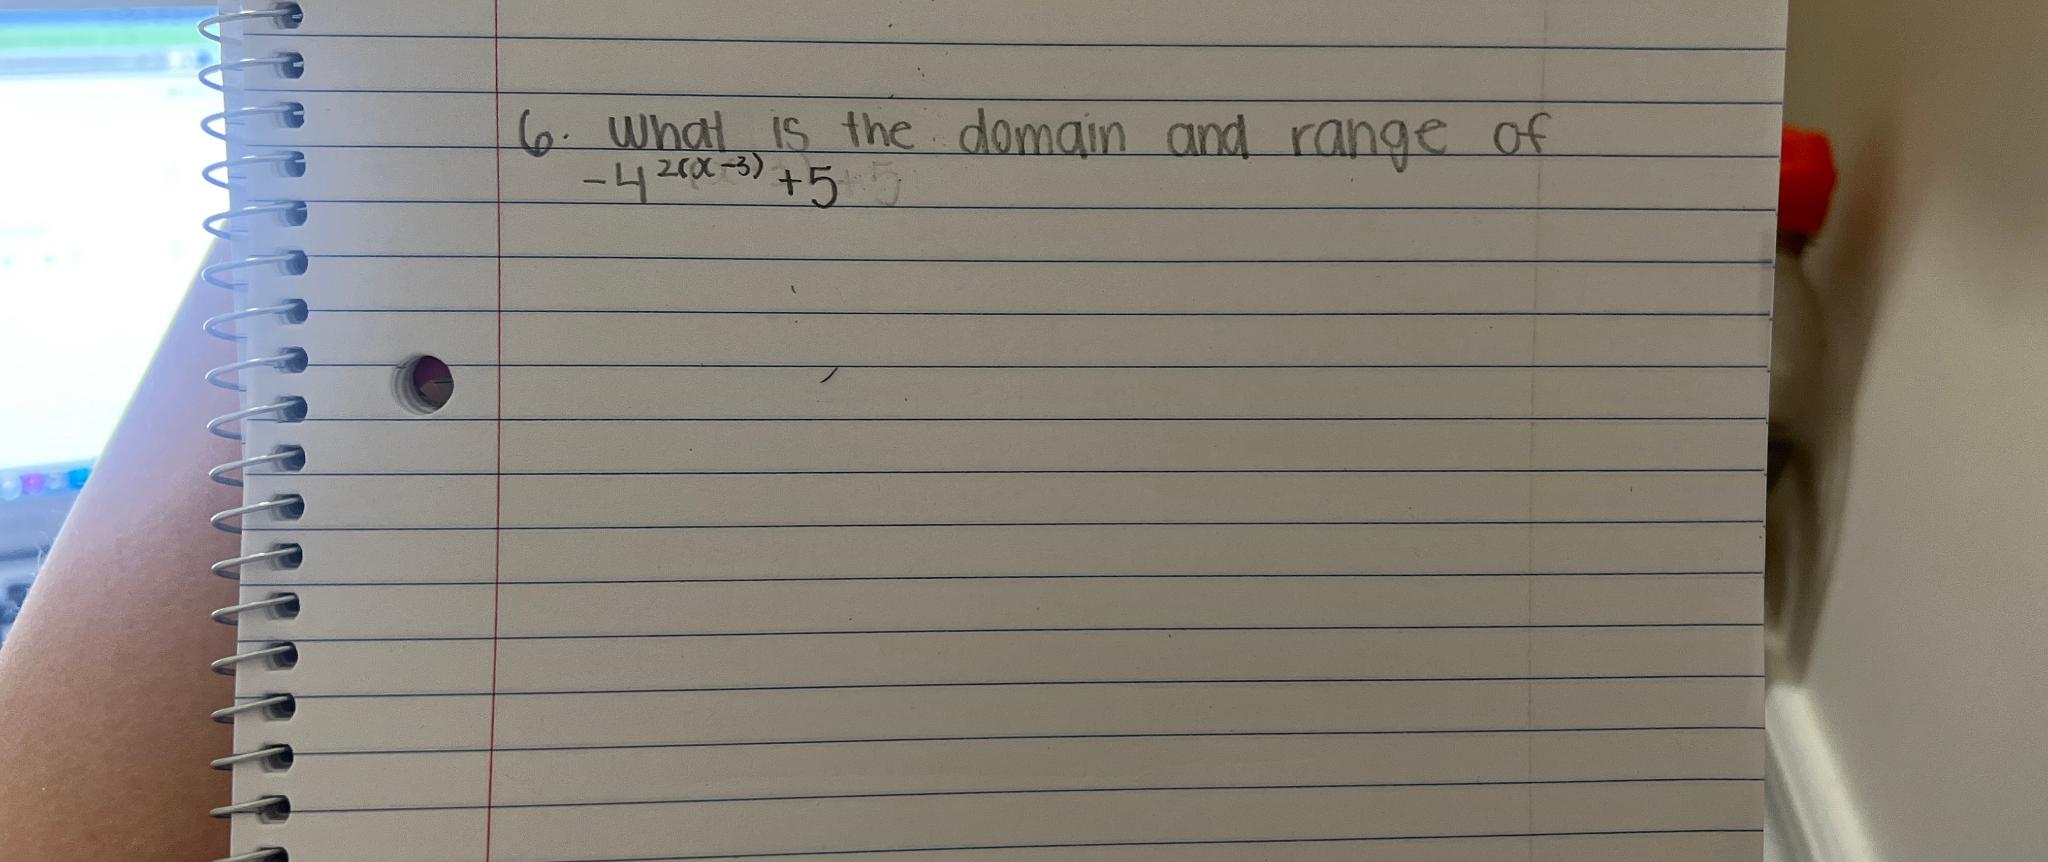 6. What is the domain and range of
-4^{2(x-3)} +5